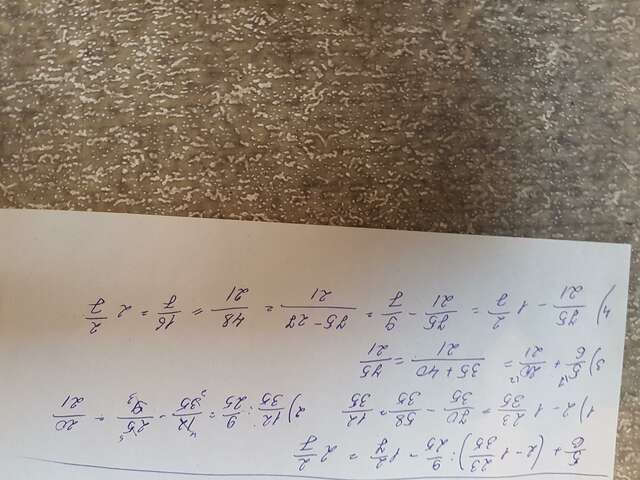 5/6 + (2 - 1 23/35) : 9/25 - 1 2/7 = 2 2/7
1) 2 - 1 23/35 = 70/35 - 58/35 = 12/35 2) 12/35 : 9/25 = 12/35 · 25/9 = 20/21
3) 5/6 + 20/21 = (35 + 40)/21 = 75/21
4) 75/21 - 1 2/7 = 75/21 - 9/7 = (75 - 27)/21 = 48/21 = 16/7 = 2 2/7